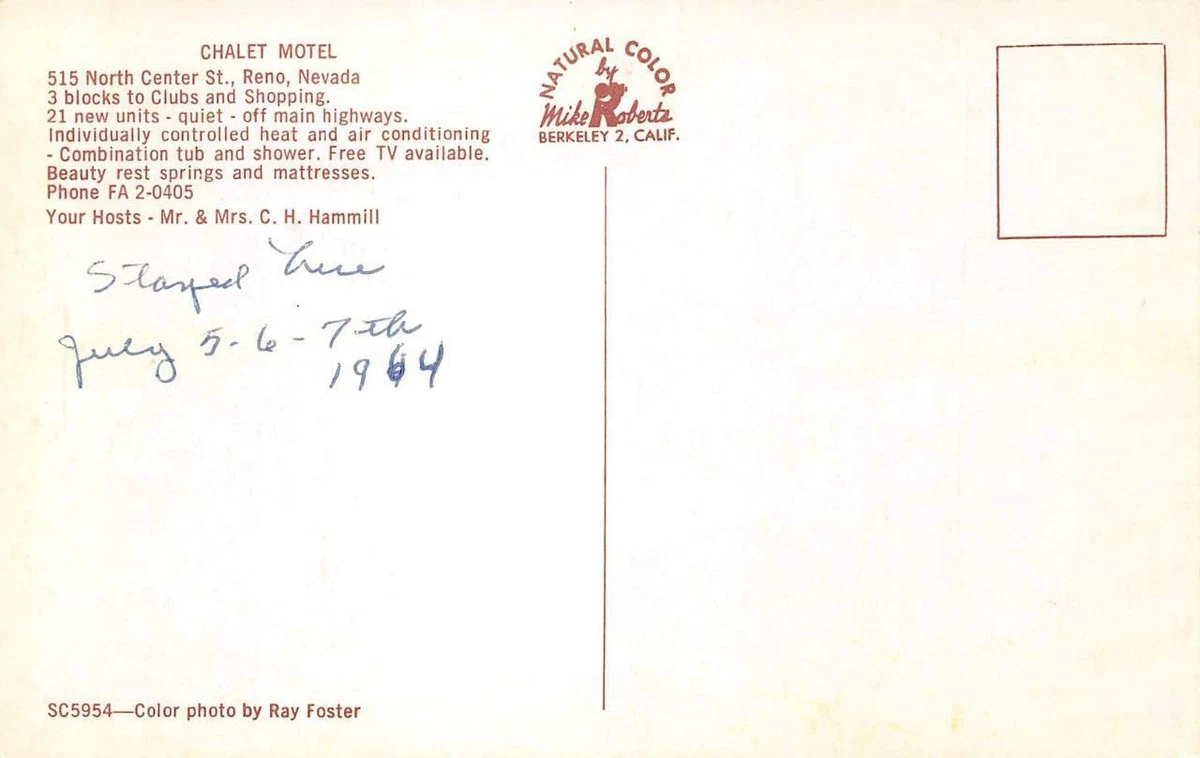 CHALET MOTEL
515 North Center St., Reno, Nevada
3 blocks to Clubs and Shopping.
21 new units - quiet - off main highways.
Individually controlled heat and air conditioning
- Combination tub and shower. Free TV available.
Beauty rest springs and mattresses.
Phone FA 2-0405
Your Hosts - Mr. & Mrs. C. H. Hammill
Stayed here
July 5-6-7th
1964
SC5954—Color photo by Ray Foster
NATURAL COLOR
by
Mike Roberts
BERKELEY 2, CALIF.